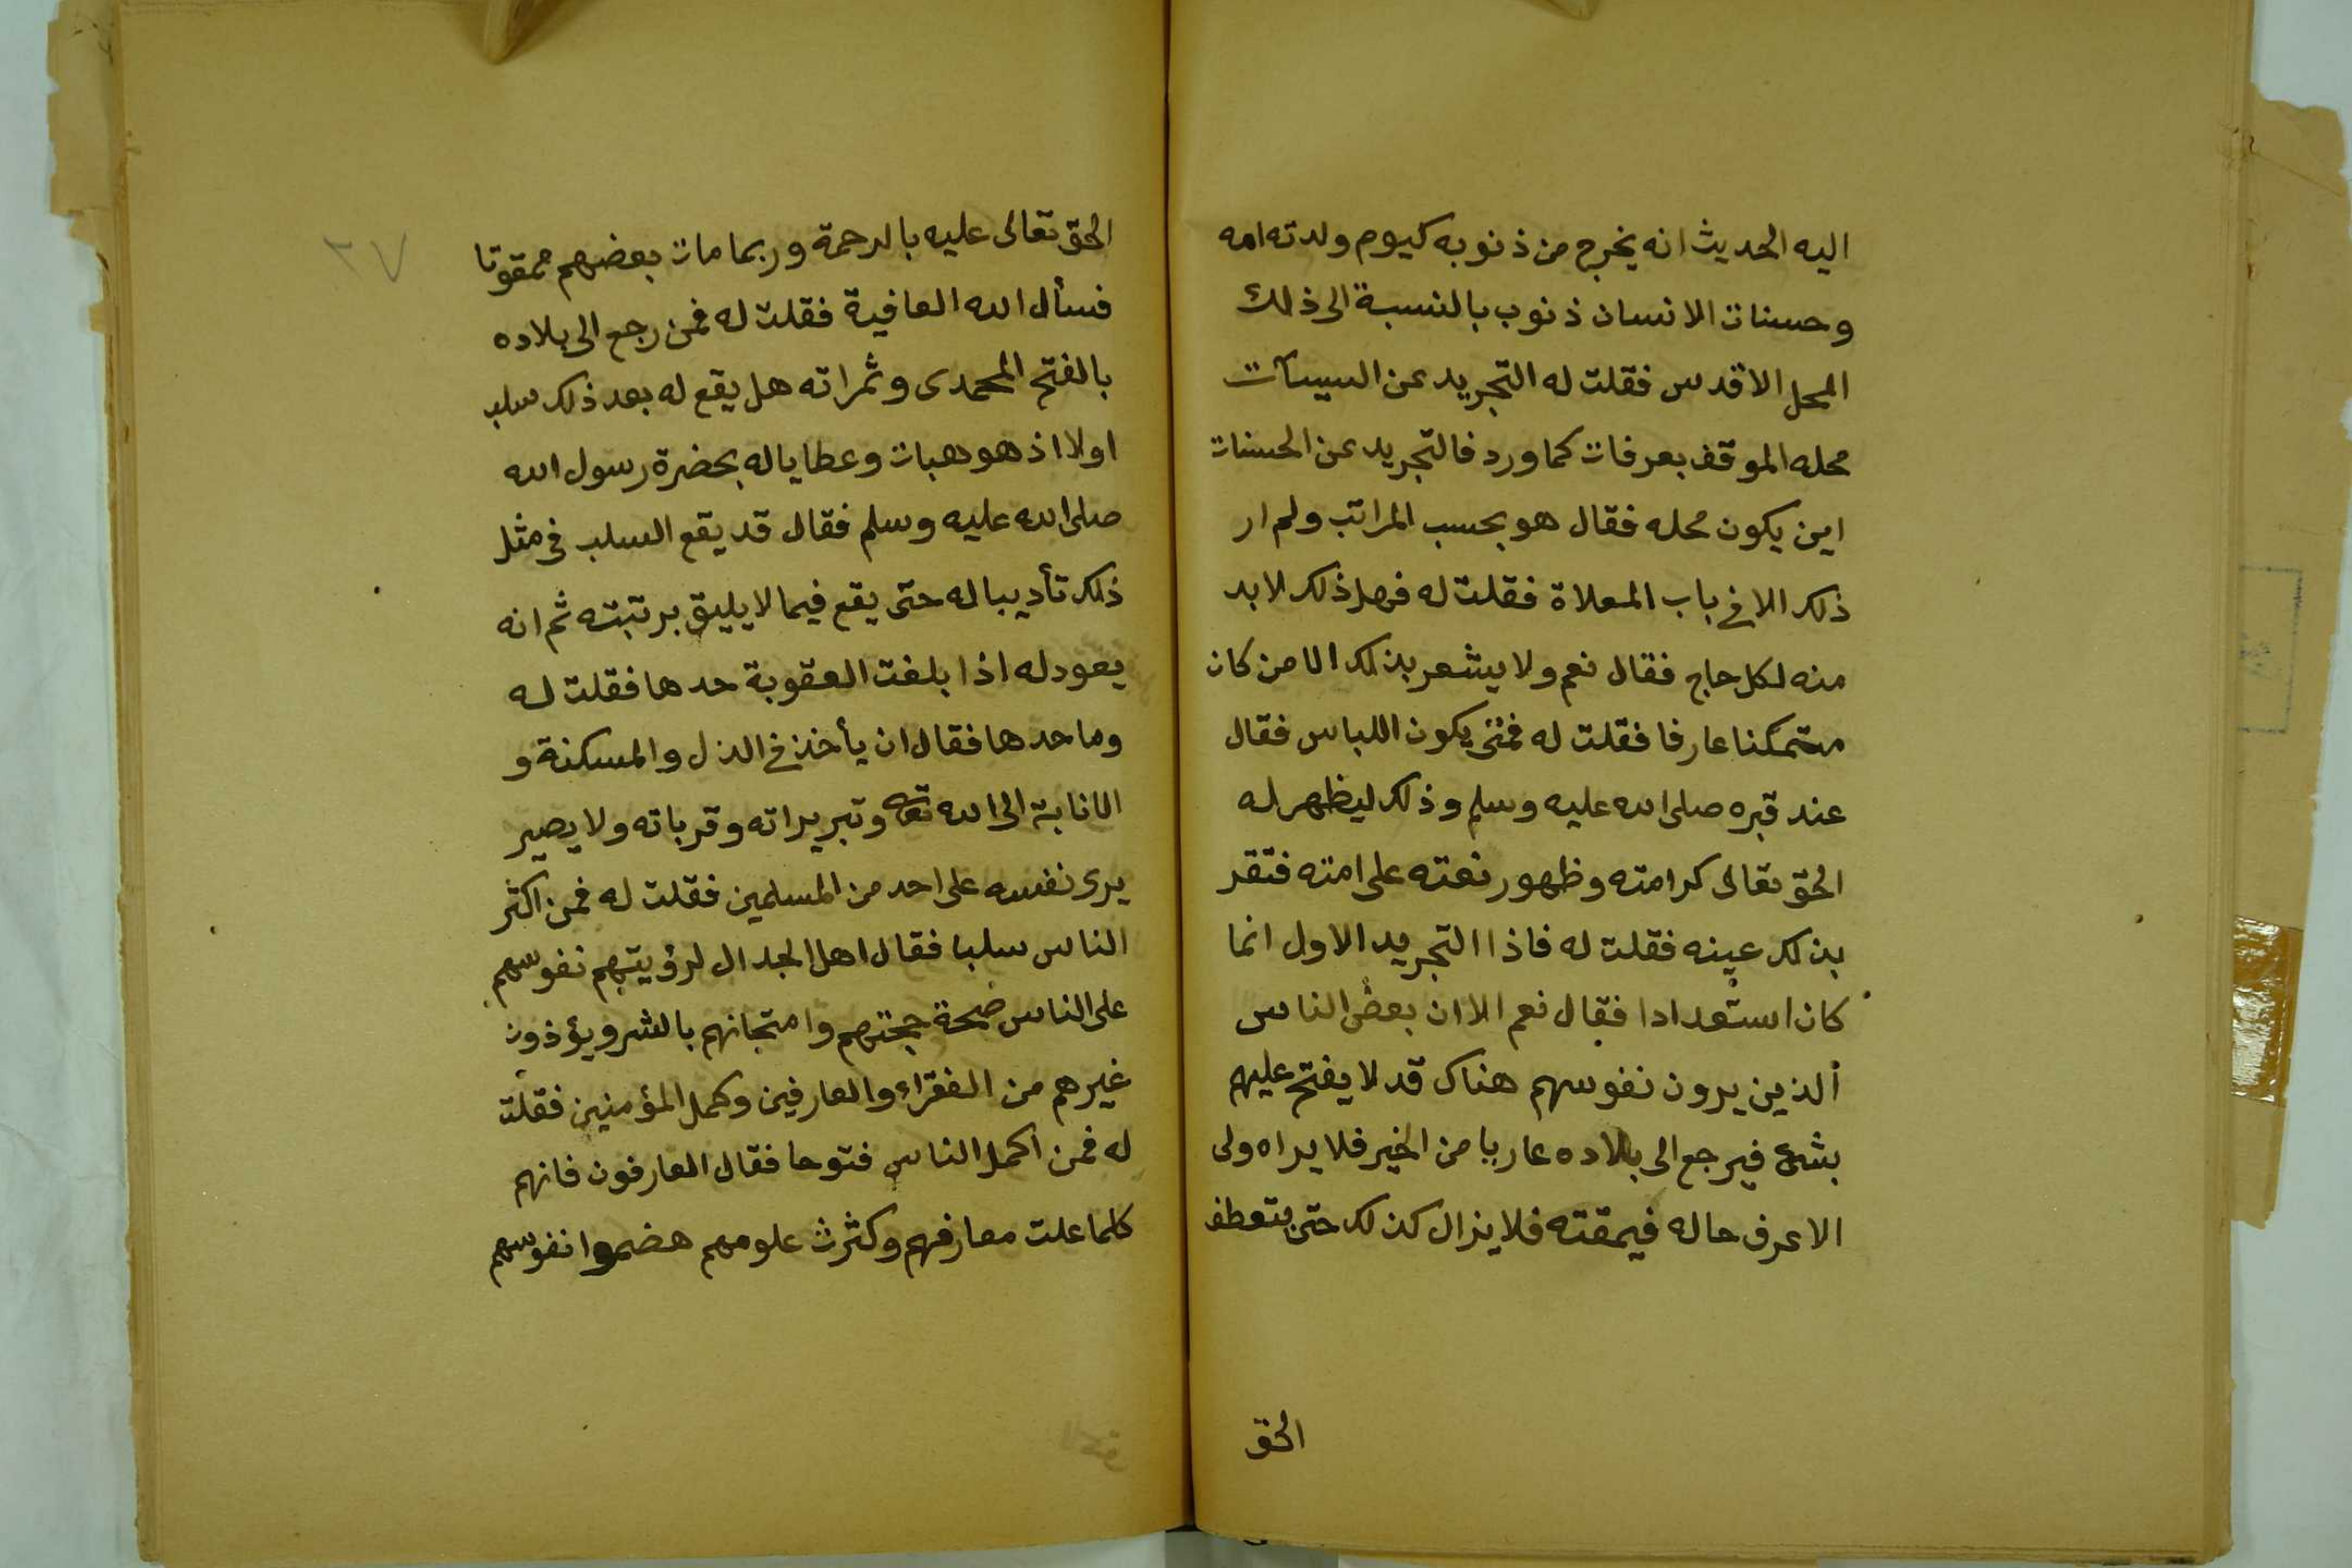 اليه الحديث انه يخرج من ذنوبه كيوم ولدته امه
وحسنات الانسان ذنوب بالنسبة الى ذلك
المحل الاقدس فقلت له التجريد عن السيئات
محله الموقف بعرفات كما ورد فالتجريد عن الحسنات
اين يكون محله فقال هو بحسب المراتب ولم ار
ذلك الا في باب المعلاة فقلت له فهل ذلك لا بد
منه لكل حاج فقال نعم ولا يشعر بذلك الا من كان
متمكنا عارفا فقلت له فمتى يكون اللباس فقال
عند قبره صلى الله عليه وسلم وذلك ليظهر له
الحق تعالى كرامته وظهور نعته على امته فتقر
بذلك عينه فقلت له فاذا التجريد الاول انما
كان استعدادا فقال نعم الا ان بعض الناس
الذين يرون نفوسهم هناك قد لا يفتح عليهم
بشئ فيرجع الى بلاده عاريا من الخير فلا يراه ولى
الا عرف حاله فيمقته فلا يزال كذلك حتى يتعطف
الحق
٣٧
الحق تعالى عليه بالرحمة وربما مات بعضهم ممقوتا
فسأل الله العافية فقلت له فمن رجع الى بلاده
بالفتح المحمدى وثمراته هل يقع له بعد ذلك سلب
اولا اذ هو هبات وعطايا له بحضرة رسول الله
صلى الله عليه وسلم فقال قد يقع السلب فى مثل
ذلك تأديبا له حتى يقع فيما لا يليق برتبته ثم انه
يعود له اذا بلغت العقوبة حدها فقلت له
وما حدها فقال ان يأخذ في الذل والمسكنة و
الانابة الى الله تعه وتبريراته وقرباته ولا يصير
يرى نفسه على احد من المسلمين فقلت له فمن اكثر
الناس سلبا فقال اهل الجدال لرؤيتهم نفوسهم
على الناس حجتهم وامتحانهم بالشر ويؤذون
غيرهم من الفقراء والعارفين وكمل المؤمنين فقلت
له فمن اكمل الناس فتوحا فقال العارفون فانهم
كلما علت معارفهم وكثرت علومهم هضموا نفوسهم